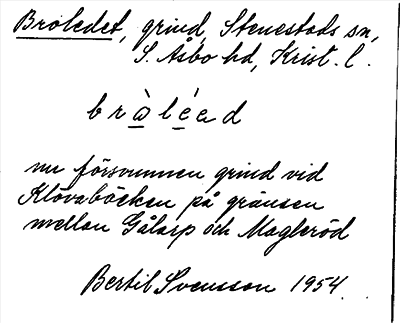 Bröledet, grind, Stenestads sn,
S. Åsbo hd, Krist. l.
b r à̱ l é̱ a d
nu försvunnen grind vid
Klövabäcken på gränsen
mellan Gålarp och Magleröd
Bertil Svensson 1954